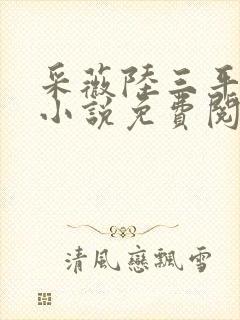 采薇陸三平
小說免費閱
清風戀飄雪